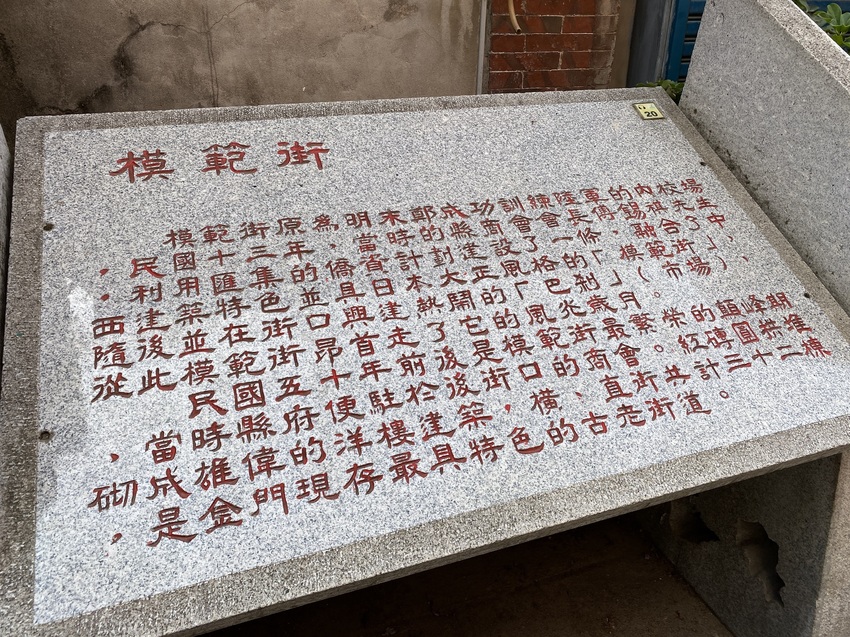 20
模範街
模範街原為明末鄭成功訓練陸軍的內校場
，民國十三年，當時的縣商會會長傅錫祺先生
，利用匯集的僑資計劃建設了一條融合了中、
西建築特色並具日本大正風格的「模範街」，
隨後並在街口興建熱鬧的「巴剎」（市場），
從此模範街昂首走了它的風光歲月。
民國五十年前後是模範街最繁榮的顛峰期
，當時縣府便駐於後街口的商會。紅磚圓拱堆
砌成雄偉的洋樓建築，橫、直街共計三十二棟
，是金門現存最具特色的古老街道。